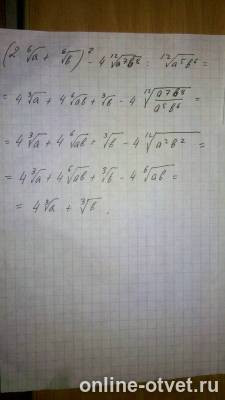 (2 ⁶√a + ⁶√b)² - 4 ¹²√a⁷b⁸ : ¹²√a⁵b⁶ =
= 4 ³√a + 4 ⁶√ab + ³√b - 4 ¹²√(a⁷b⁸/a⁵b⁶) =
= 4 ³√a + 4 ⁶√ab + ³√b - 4 ¹²√a²b² =
= 4 ³√a + 4 ⁶√ab + ³√b - 4 ⁶√ab =
= 4 ³√a + ³√b.
online-otvet.ru